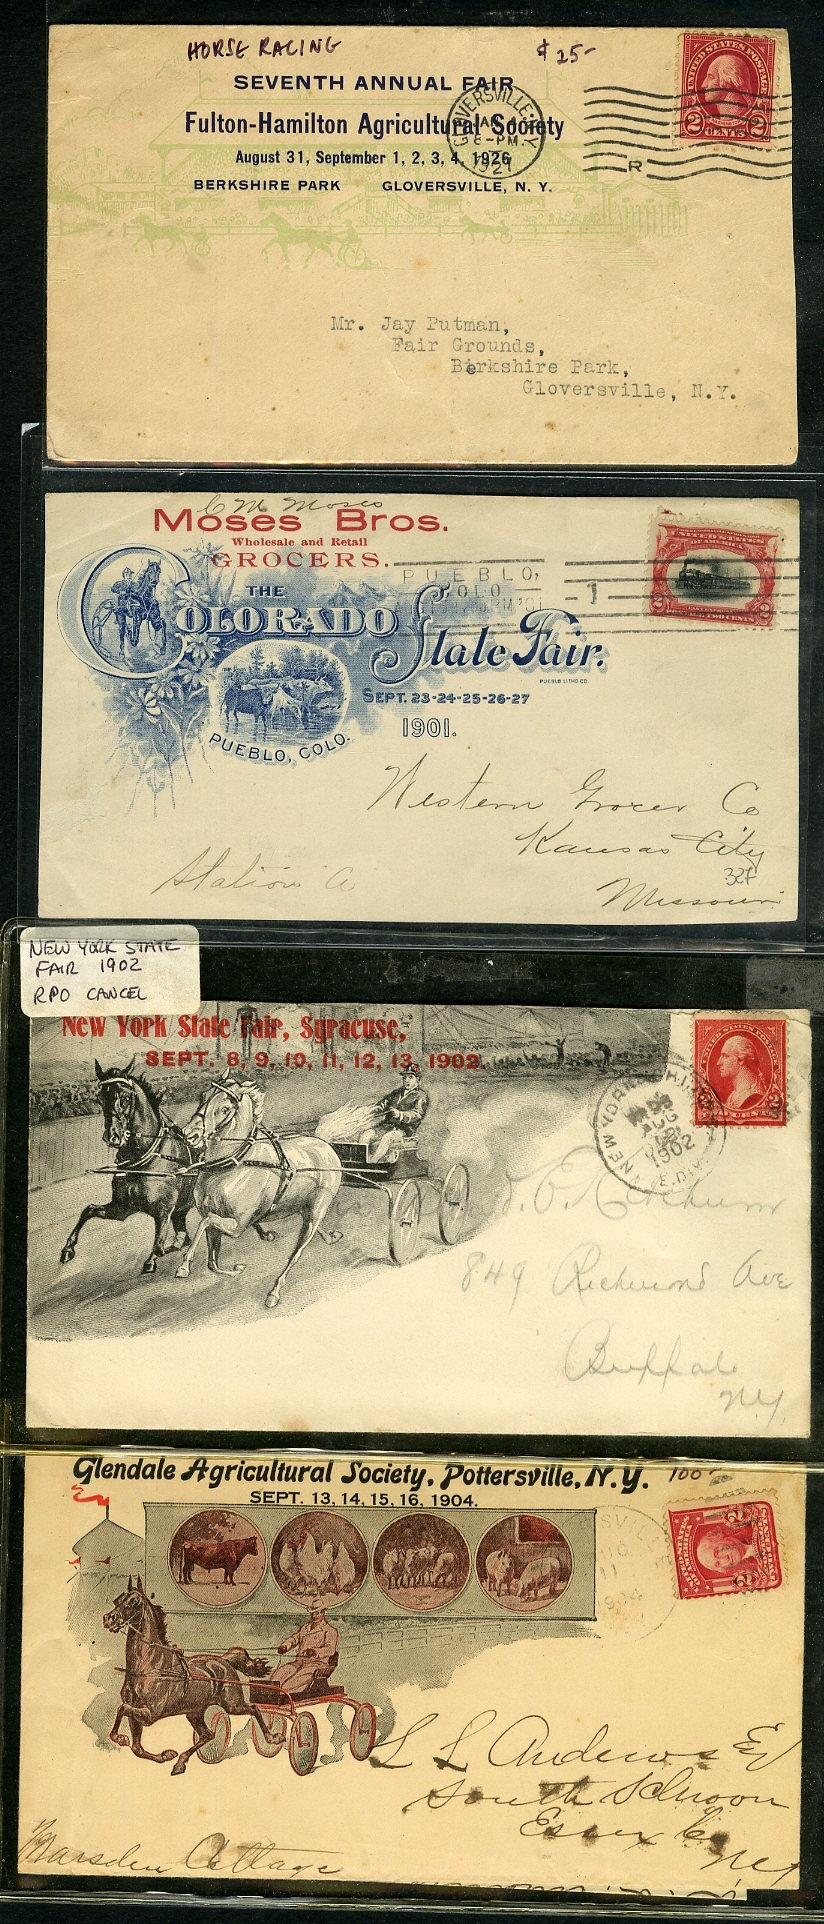 HORSE RACING
$25-
SEVENTH ANNUAL FAIR
Fulton-Hamilton Agricultural Society
August 31, September 1, 2, 3, 4, 1926
BERKSHIRE PARK GLOVERSVILLE, N. Y.
UNITED STATES POSTAGE
2 CENTS 2
GLOVERSVILLE, N.Y.
6-PM
1927
R
Mr. Jay Putman,
Fair Grounds,
Berkshire Park,
Gloversville, N.Y.
C M Moses
Moses Bros.
Wholesale and Retail
GROCERS.
THE
COLORADO
State Fair.
PUEBLO LITHO. CO.
SEPT. 23-24-25-26-27
1901.
PUEBLO, COLO.
PUEBLO,
COLO
1
UNITED STATES
OF AMERICA
2 TWO CENTS 2
Western Grocer Co
Kansas City
32F
Missouri
Station A
NEW YORK STATE
FAIR 1902
RPO CANCEL
New York State Fair, Syracuse,
SEPT. 8, 9, 10, 11, 12, 13, 1902.
NEW YORK
AUG
1902
E.DIV.
849 Richmond Ave
Buffalo
N.Y.
Glendale Agricultural Society, Pottersville, N.Y.
SEPT. 13, 14, 15, 16, 1904.
SVILLE
AUG
11
1904
L L Andrews
South Schroon
Essex Co
N.Y
Marsden Cottage